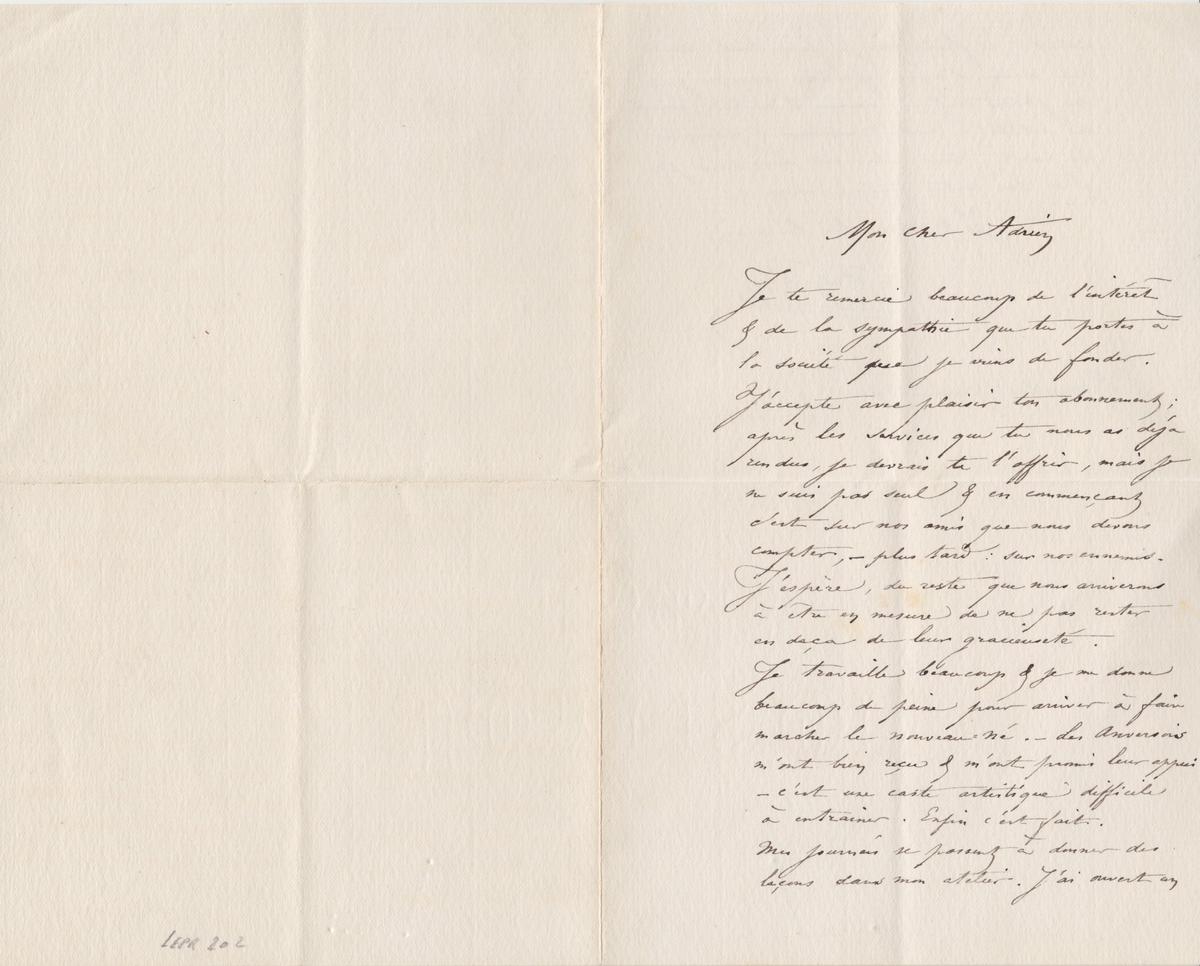 Mon cher Adrien
Je te remercie beaucoup de l'intérêt
& de la sympathie que tu portes à
la société que je viens de fonder.
J'accepte avec plaisir ton abonnement;
après les services que tu nous as déjà
rendus, je devrais te l'offrir, mais je
ne suis pas seul & en commençant
c'est sur nos amis que nous devons
compter, – plus tard : sur nos ennemis.
J'espère, du reste que nous arriverons
à être en mesure de ne pas rester
en deça de leur gracieuseté.
Je travaille beaucoup & je me donne
beaucoup de peine pour arriver à faire
marcher le nouveau-né. – Les Anversois
m'ont bien reçu & m'ont promis leur appui
– c'est une caste artistique difficile
à entrainer. Enfin c'est fait.
Mes journées se passent à donner des
leçons dans mon atelier. J'ai ouvert un
LEPR 202